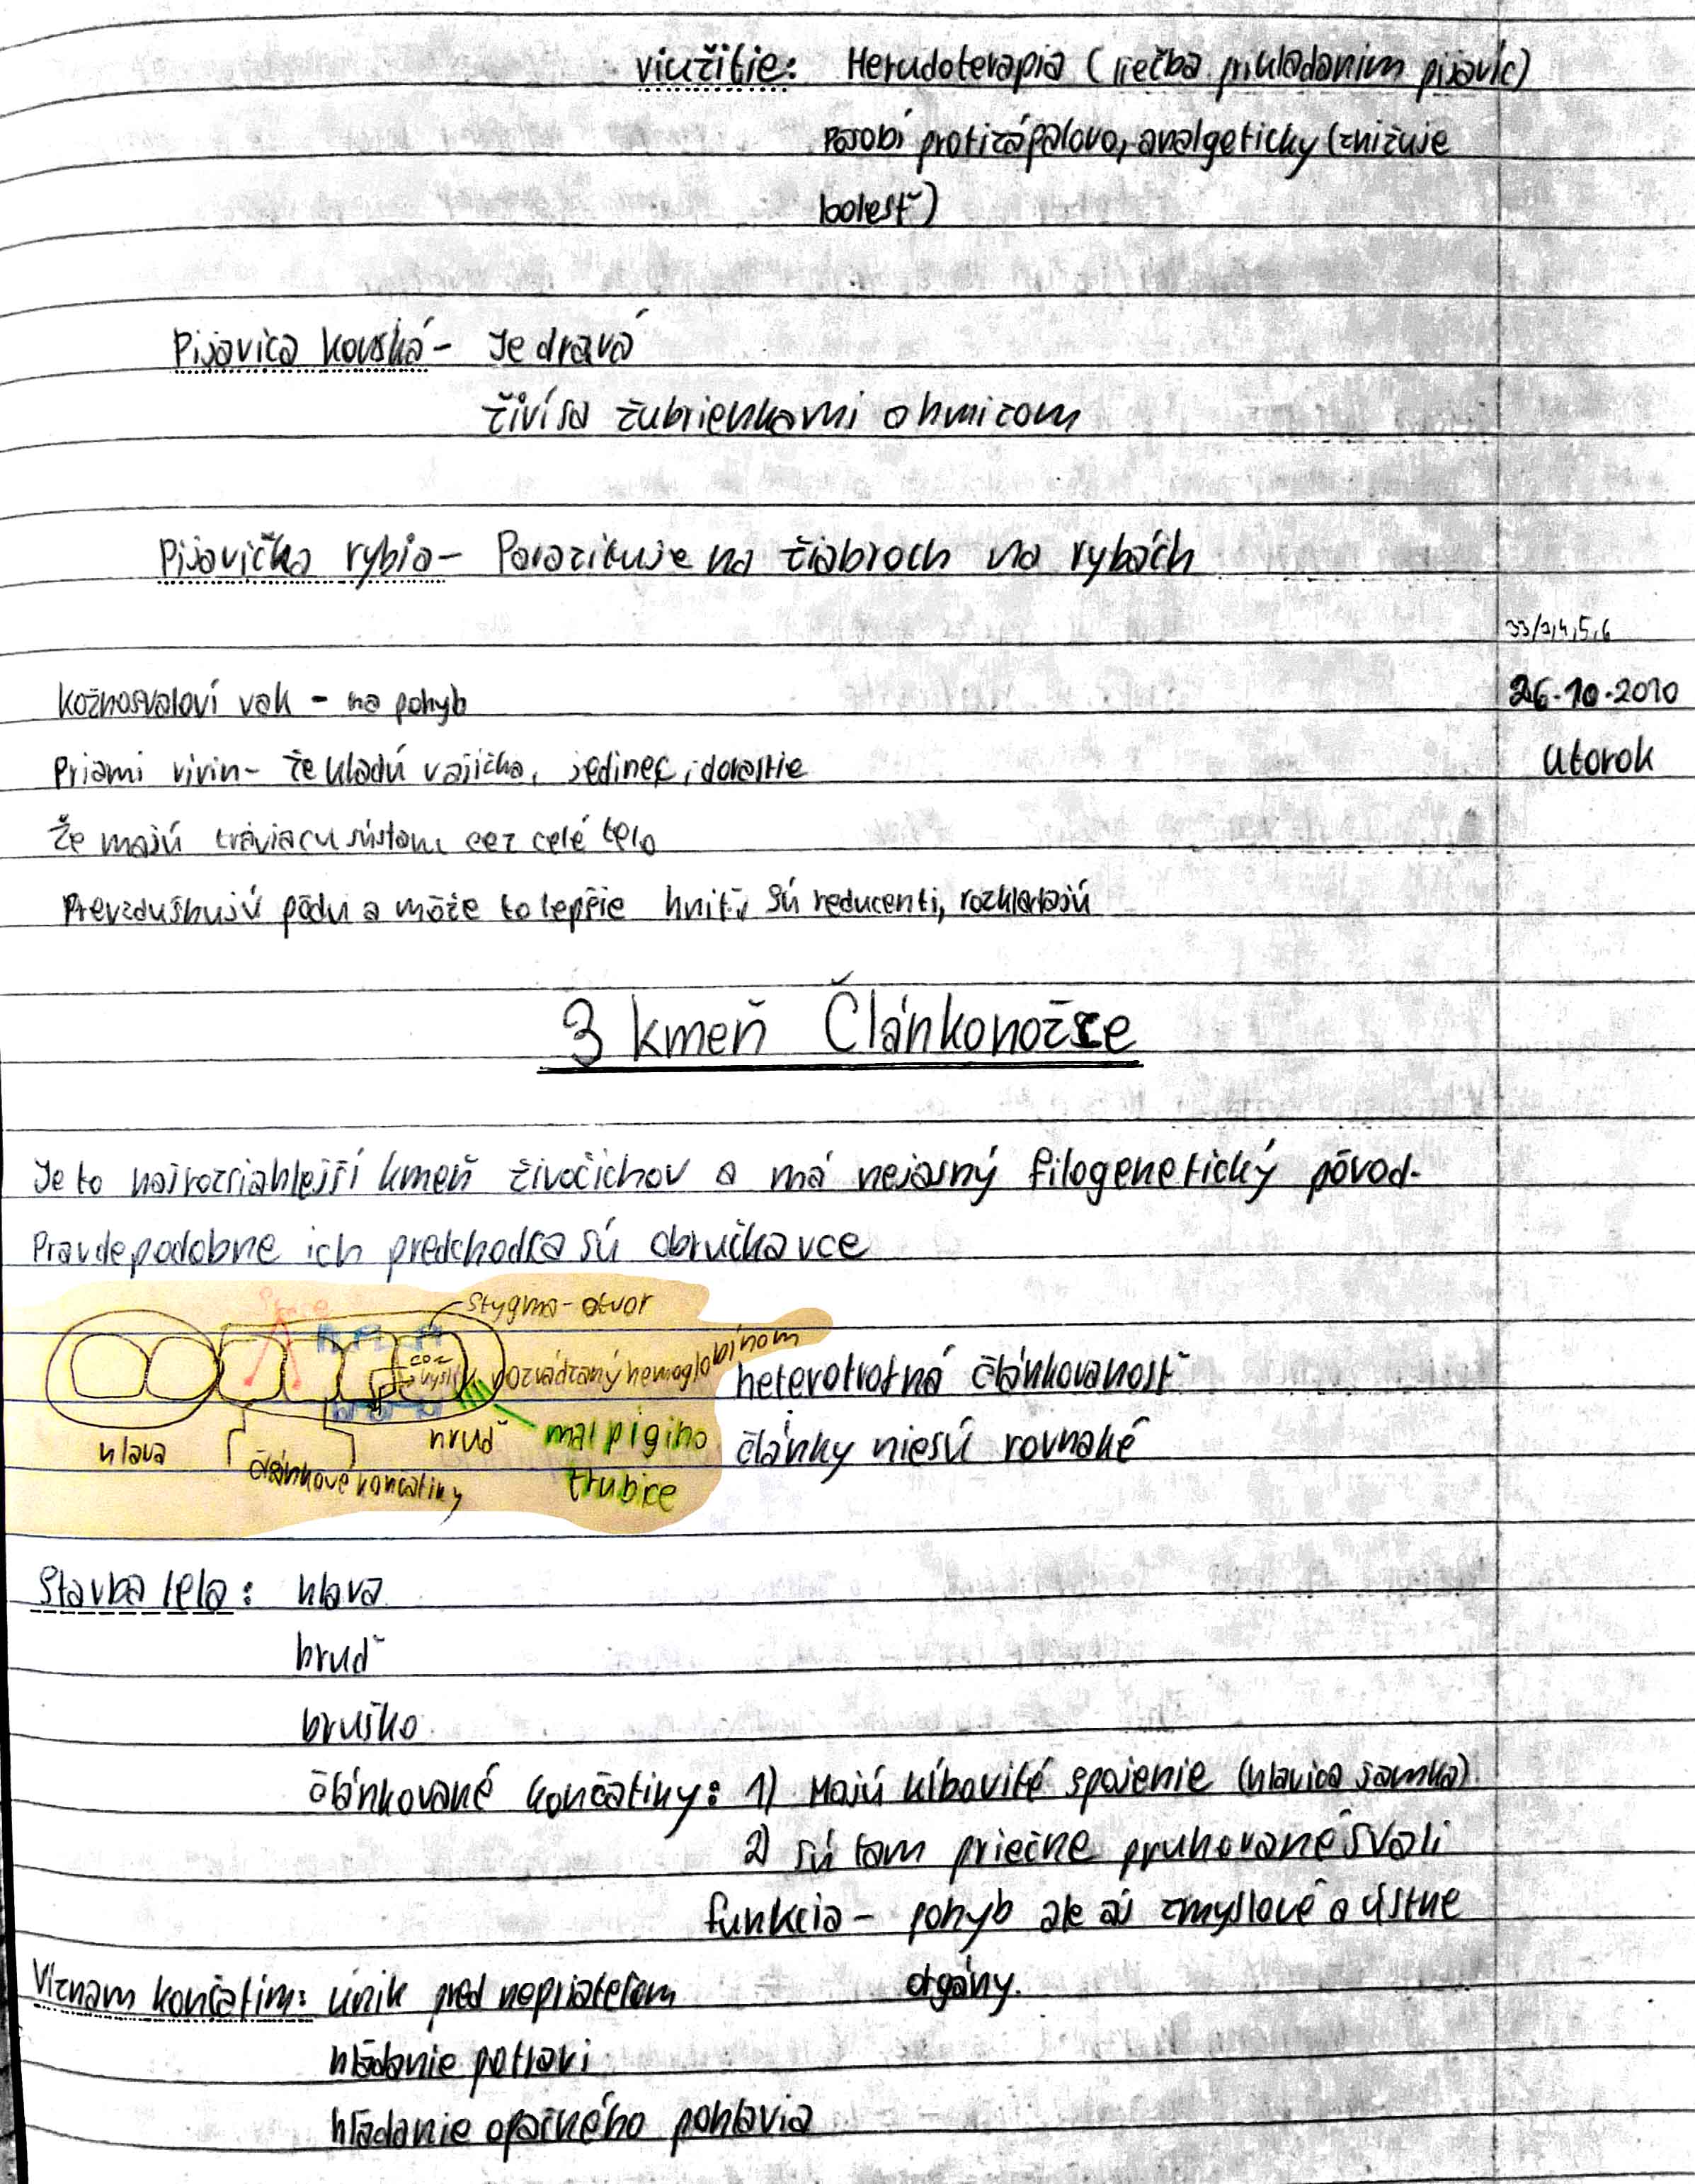 viužitie: Herudoterapia (liečba prikladaním pijavíc)
Pôsobí protizápalovo, analgeticky (znižuje
bolesť)
Pijavica konská - Je dravá
živí sa žubrienkami o hmizom
Pijavička rybia - Parazituje na žiabroch na rybách
33/3,4,5,6
Kožnosvaloví vak - na pohyb
26.10.2010
Priami vivin - že kladú vajíčka, jedinec, dorastie
Utorok
že majú tráviacu sústavu cez celé telo
Prevzdušňujú pôdu a môže to lepšie hniť, sú reducenti, rozkladajú
3 kmeň Článkonožce
Je to najrozsiahlejší kmeň živočíchov a má nejasný filogenetický pôvod.
Pravdepodobne ich predchodca sú obručkavce
stygma - otvor
CO2
rozvádzaný hemoglobínom
heterotrofná článkovanosť
hlava
hruď
malpigiho
články niesú rovnaké
článkove končatiny
trubice
Stavba tela: hlava
hruď
bruško
článkované končatiny: 1) Majú kĺbovité spojenie (hlavica jamka)
2) sú tam priečne pruhované svali
funkcia - pohyb ale aj zmyslové a ústne
orgány.
Viznam končatím: únik pred nepriateľom
hľadanie potravi
hľadanie opačného pohlavia